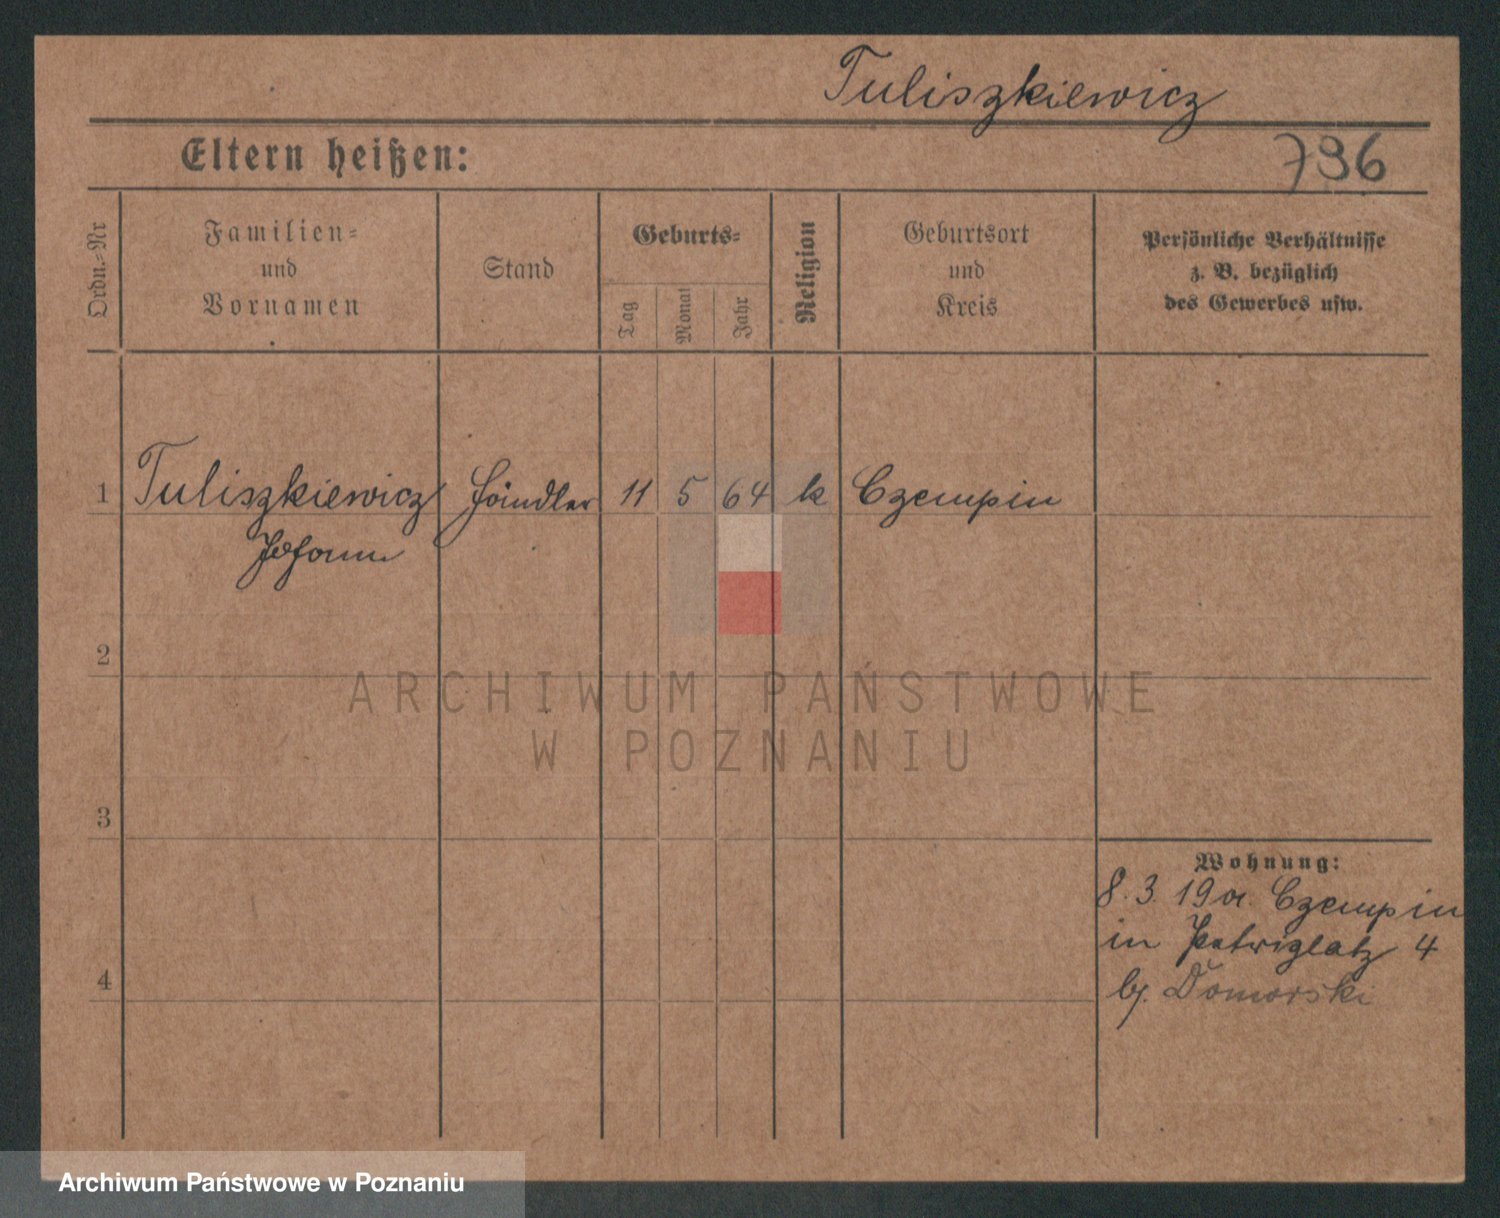 Tuliszkiewicz
Eltern heißen:
796
Ordn.=Nr
Familien=
und
Vornamen
Stand
Geburts=
Tag
Monat
Jahr
Religion
Geburtsort
und
Kreis
Persönliche Verhältnisse
z. B. bezüglich
des Gewerbes usw.
1 Tuliszkiewicz Händler 11 5 64 k Czempin
Johann
2
ARCHIWUM PAŃSTWOWE
W POZNANIU
3
Wohnung:
8. 3. 19 a. Czempin
in Petriplatz 4
4
b/. Domorski
Archiwum Państwowe w Poznaniu